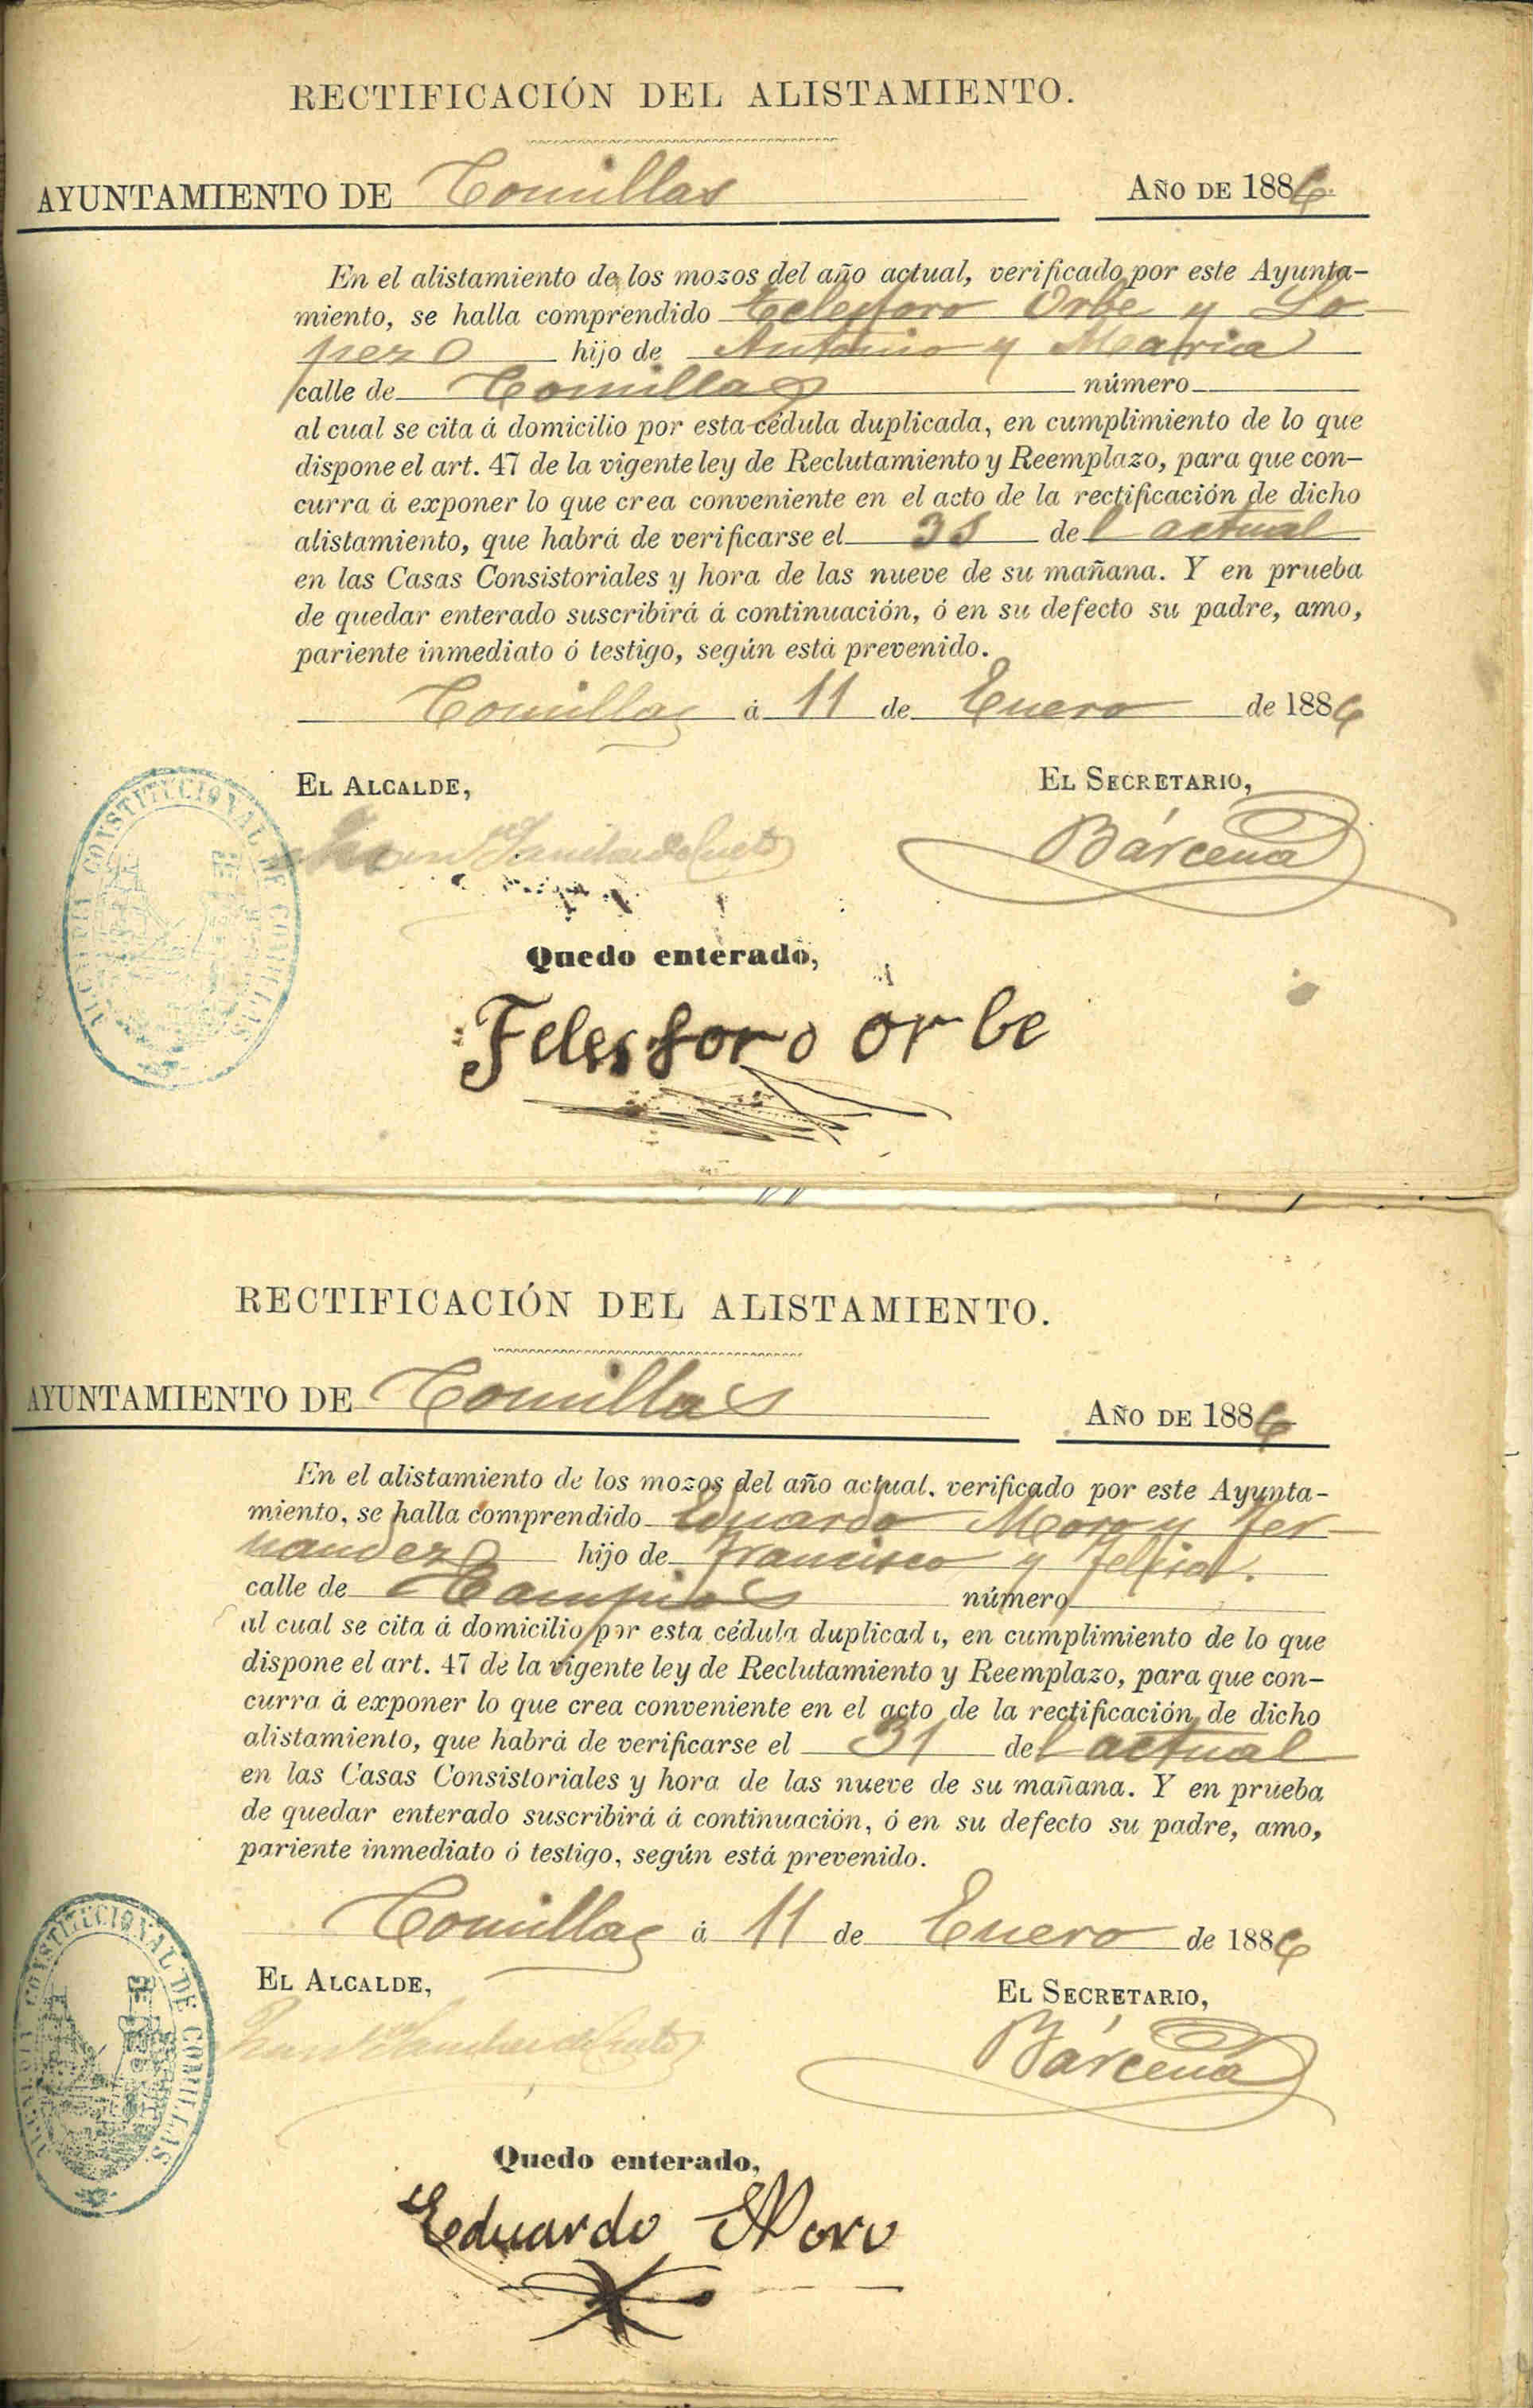 RECTIFICACIÓN DEL ALISTAMIENTO.
AYUNTAMIENTO DE Comillas AÑO DE 1886
En el alistamiento de los mozos del año actual, verificado por este Ayunta-
miento, se halla comprendido Telesforo Orbe y Lo
pez hijo de Antonio y Maria
calle de Comillas número
al cual se cita á domicilio por esta cédula duplicada, en cumplimiento de lo que
dispone el art. 47 de la vigente ley de Reclutamiento y Reemplazo, para que con-
curra á exponer lo que crea conveniente en el acto de la rectificación de dicho
alistamiento, que habrá de verificarse el 31 del actual
en las Casas Consistoriales y hora de las nueve de su mañana. Y en prueba
de quedar enterado suscribirá á continuación, ó en su defecto su padre, amo,
pariente inmediato ó testigo, según está prevenido.
Comillas á 11 de Enero de 1886
EL ALCALDE, EL SECRETARIO,
Juan Sanchez de Cueto Bárcena
ALCALDIA CONSTITUCIONAL DE COMILLAS
Quedo enterado,
Telesforo orbe
RECTIFICACIÓN DEL ALISTAMIENTO.
AYUNTAMIENTO DE Comillas AÑO DE 1886
En el alistamiento de los mozos del año actual, verificado por este Ayunta-
miento, se halla comprendido Eduardo Moro y Fer
nandez hijo de Francisco y Felisa.
calle de Campios número
al cual se cita á domicilio por esta cédula duplicada, en cumplimiento de lo que
dispone el art. 47 de la vigente ley de Reclutamiento y Reemplazo, para que con-
curra á exponer lo que crea conveniente en el acto de la rectificación de dicho
alistamiento, que habrá de verificarse el 31 del actual
en las Casas Consistoriales y hora de las nueve de su mañana. Y en prueba
de quedar enterado suscribirá á continuación, ó en su defecto su padre, amo,
pariente inmediato ó testigo, según está prevenido.
Comillas á 11 de Enero de 1886
EL ALCALDE, EL SECRETARIO,
Juan Sanchez de Cueto Bárcena
ALCALDIA CONSTITUCIONAL DE COMILLAS
Quedo enterado,
Eduardo Moro